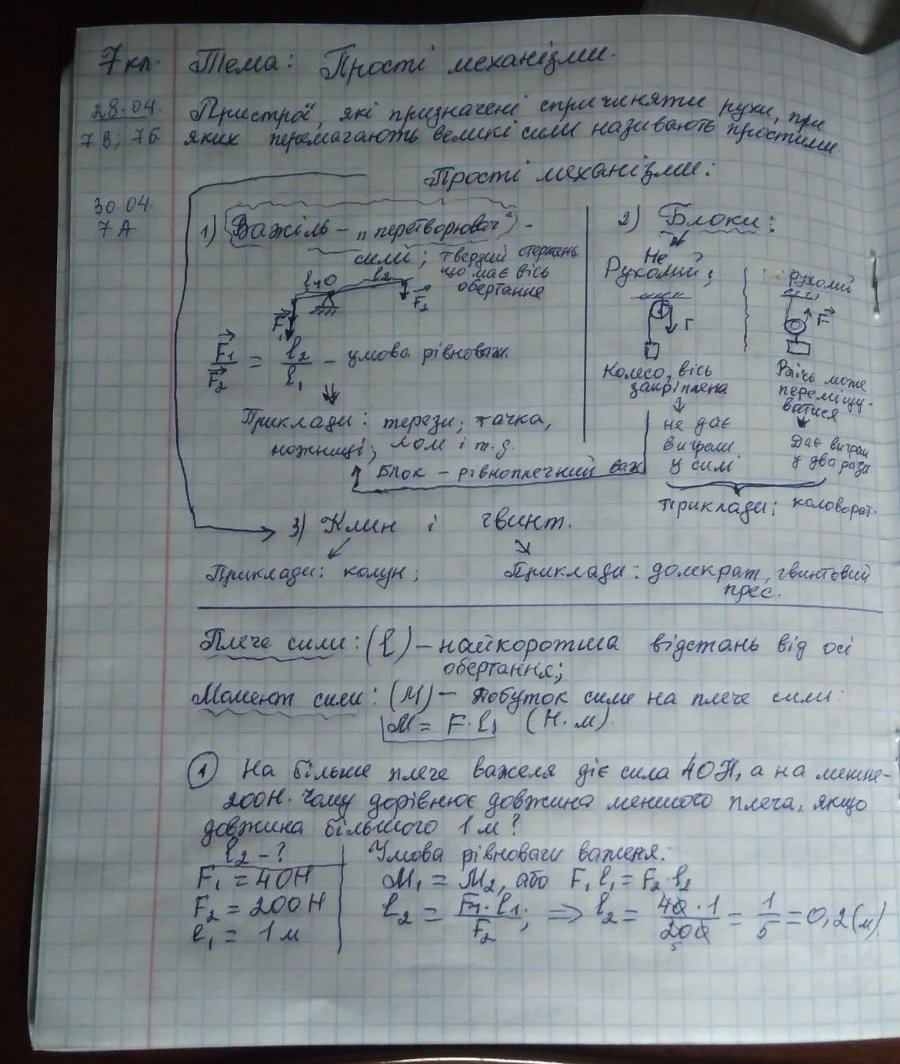 7 кл. Тема: Прості механізми.
28.04. Пристрої, які призначені спричиняти рухи, при
7В; 7Б яких перемагають великі сили називають простими
Прості механізми:
30.04.
7А
1) Важіль – "перетворювач" –
сили; твердий стержень
що має вісь
обертання
l₁ O l₂
F₁ F₂
F₁/F₂ = l₂/l₁ – умова рівноваж
Приклади: терези, тачка,
ножниці, лом і т.д.
Блок – рівноплечний важ
2) Блоки:
Не
Рухомий;
F
Колесо, вісь
закріплена
не дає
виграш
у силі
рухомий
F
Вічь може
переміщу-
ватися
Дає виграш
у два рази
Приклади; коловорот.
3) Клин і гвинт.
Приклади: колун; Приклади: домкрат, гвинтовий
прес.
Плече сили: (l) – найкоротша відстань від осі
обертання;
Момент сили: (M) – добуток сили на плече сили:
M = F·l, (Н·м).
1 На більше плече важеля діє сила 40Н, а на менше-
200Н. Чому дорівнює довжина меншого плеча, якщо
довжина більшого 1 м?
l₂ – ?
F₁ = 40Н
F₂ = 200Н
l₁ = 1 м
Умова рівноваги важеля:
M₁ = M₂, або F₁ l₁ = F₂·l₂
l₂ = F₁·l₁/F₂; ⇒ l₂ = 40·1/200 = 1/5 = 0,2 (м)
5